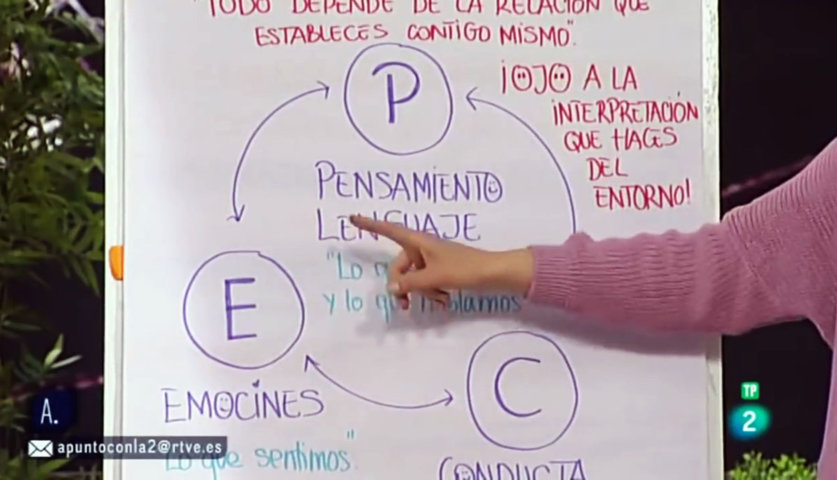 "TODO DEPENDE DE LA RELACIÓN QUE
ESTABLECES CONTIGO MISMO".
¡OJO A LA
INTERPRETACIÓN
QUE HACES
DEL
ENTORNO!
P
PENSAMIENTO
LENGUAJE
"Lo
y lo que hablamos
E
EMOCINES
"Lo que sentimos"
C
CONDUCTA
A.
apuntoconla2@rtve.es
TP
2